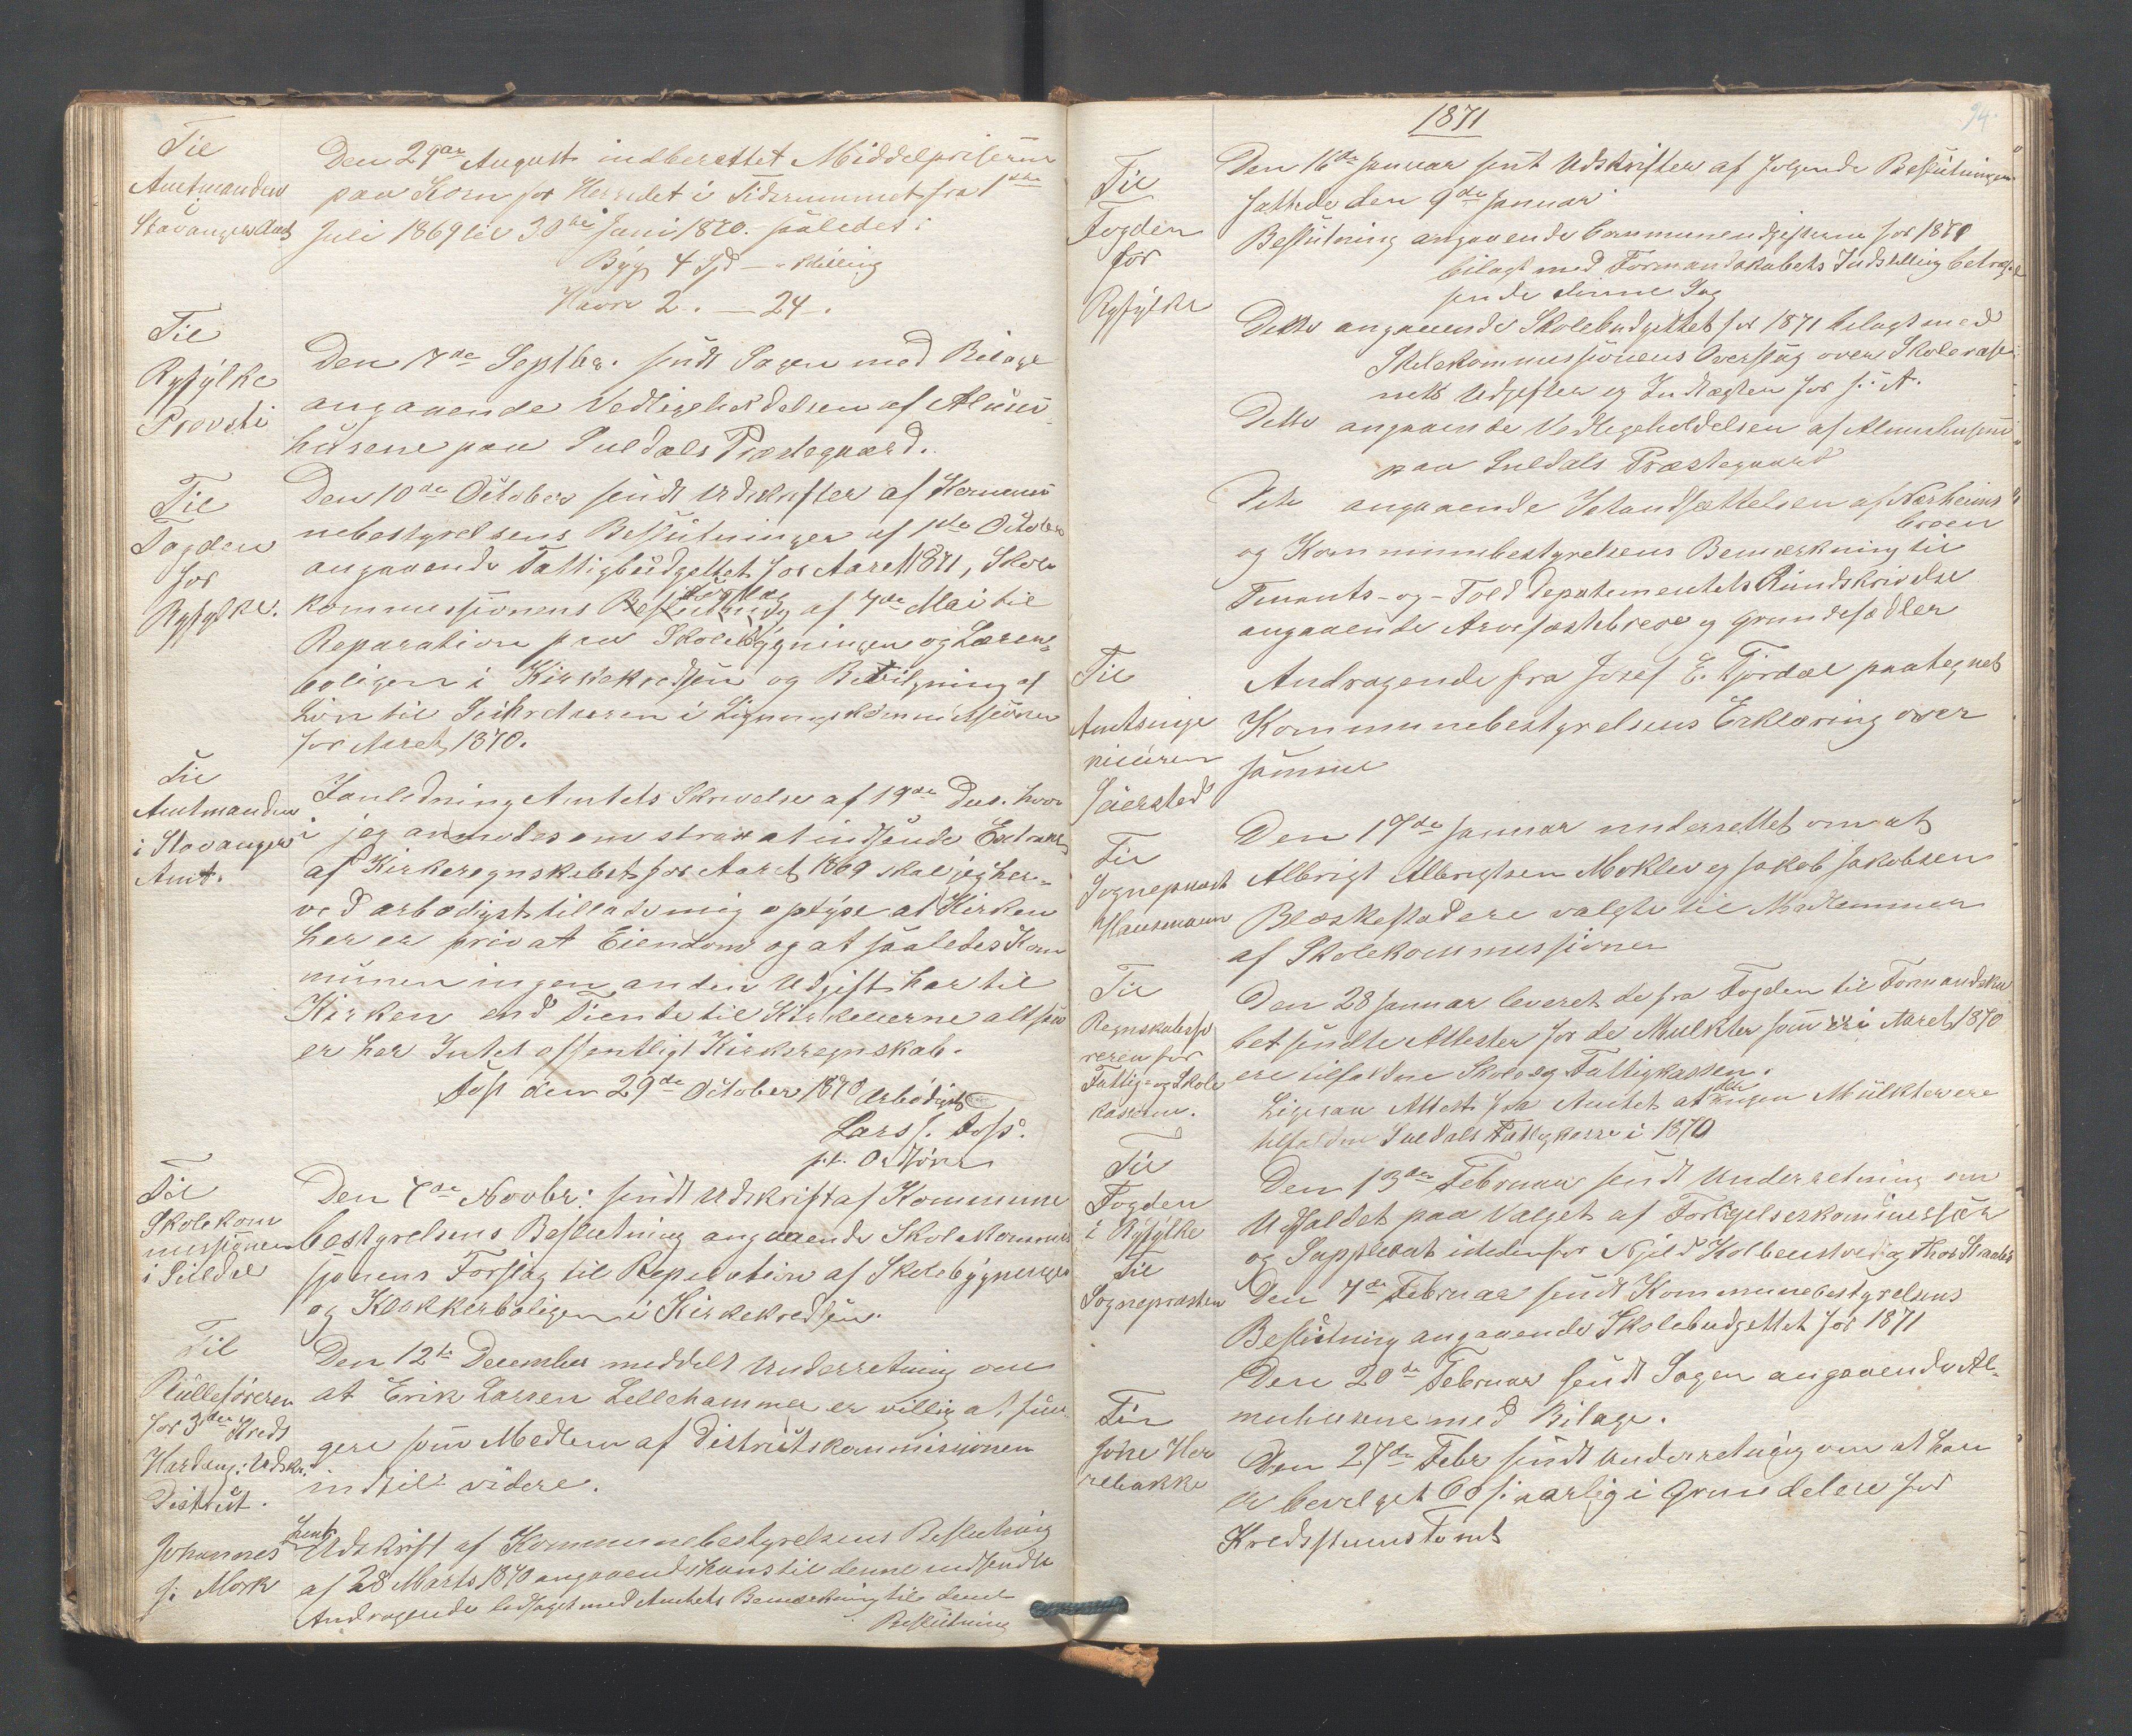 Til
Amtmanden
Stavanger Amt
Den 29de August indberettet Middelpriserne
paa Korn for Herredet i Tidsrummet fra 1ste
Juli 1869 til 30te Juni 1870. saaledes:
Byg 4 Spd — " Skilling
Havre 2. — 24.
Til
Ryfylke
Provsti
Den 17de Septbr. sendt Sagen med Bilage
angaaende Vedligeholdelsen af Alminn
husene paa Suldals Præstegaard.
Til
Fogden
for
Ryfylke.
Den 10de October sendt Udskrifter af Kommu
nebestyrelsens Beslutninger af 1ste October
angaaende Fattigbudgettet for Aaret 1871, Skole
kommissionens Forslag af 7de Mai til
Reparation paa Skolebygningen og Lærer=
boligen i Kirkekredsen og Bevilgning af
Løn til Sekretæren i Ligningskommissionen
for Aaret 1870.
Til
Amtmanden
i Stavanger
Amt.
I anledning Amtets Skrivelse af 19de Dns. hvor
i jeg anmodes om strax at indsende Extract
af Kirkeregnskabet for Aaret 1869 skal jeg her=
ved ærbødigst tillade mig oplyse at Kirken
her er privat Eiendom og at saaledes Kom
munen ingen anden Udgift har til
Kirken end Tiende til Kirkeeierne altsaa
er her Intet offentligt Kirkeregnskab.
Foss den 29de October 1870 Ærbødigst
Lars J. Foss.
p.t. Ordfører
Til
Skolekom
missionen
i Suldal
Den 7de Novbr: sendt Udskrift af Kommune
bestyrelsens Beslutning angaaende Skolekommis
sionens Forslag til Reparation af Skolebygningen
og Klokkerboligen i Kirkekredsen.
Til
Rulleføreren
for 3die Kreds
Hardang: Udskr.
District.
Den 12te December meddelt Underretning om
at Erik Larsen Lellehammer er villig at fun
gere som Medlem af Districtskommissionen
indtil videre.
Johannes
J: Mork
Sendt
Udskrift af Kommunebestyrelsens Beslutning
af 28 Marts 1870 angaaende hans til denne indsendte
Andragende ledsaget med Amtets Bemærkning til denne
Beslutning
1871
94.
Til
Fogden
for
Ryfylke
Den 16de Januar sent Udskrifter af følgende Beslutninger
fattede den 9de Januar
Beslutning angaaende Communeudgifterne for 1871
bilagt med Formandskabets Indstilling betræf
fende denne Sag
Detto angaaende Skolebudgettet for 1871 bilagt med
Skolekommissionens Overslag over Skolevæse
nets Udgifter og Indtægter for s. A.
Detto angaaende Vedligeholdelsen af Almuehusene
paa Suldals Præstegaard
Dito angaaende Istandsættelsen af Nærheims
broen
og Kommunebestyrelsens Bemærkning til
Finants- og- Told Departementets Rundskrivelse
angaaende Arvefæstebreve og Grundesedler
Til
Amtsinge
nieuren
Siersted
Andragende fra Josef E. Fjordal paategnet
Kommunebestyrelsens Erklæring over
samme
Til
Sognepræst
Hausmann
Den 17de Januar underrettet om at
Albrigt Albrigtsen Moklev og Jakob Jakobsen
Bleskestadere valgte til Medlemmer
af Skolekommissionen
Til
Regnskabsfø
reren for
Fattig- og Skole
kassen.
Den 28 Januar leveret de fra Fogden til Formandska
bet sendte Attester for de Mulkter som i Aaret 1870
ere tilfaldne Skole og Fattigkassen.
Ligesaa Attest fra Amtet at ingen Mulkter ere
tilfaldne Suldals Fattigkasse i 1870
Til
Fogden
i Ryfylke
Den 13de Februar sendt Underretning om
Udfaldet paa Valget af Forligelseskommissær
og Suppleant istedenfor Njeld Kolbeinstvedt og Thor Straabø
Til
Sognepræsten
Den 7de Februar sendt Kommunebestyrelsens
Beslutning angaaende Skolebudgettet for 1871
Den 20de Februar sendt Sagen angaaende Al=
muhusene med Bilage.
Til
Johe Her
rebakke
Den 27de Febr sendt Underretning om at han
er bevilget 60 s. aarlig i Grundeleie for
Kredsstuens Tomt